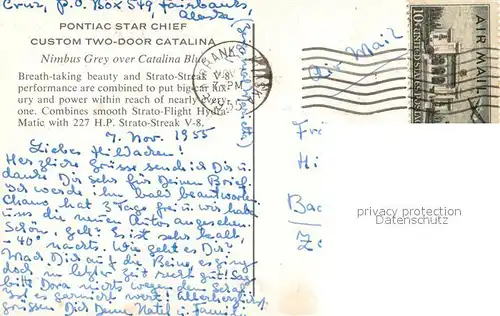 Cruz, P.O. Box 549, Fairbanks,
Alaska
PONTIAC STAR CHIEF
CUSTOM TWO-DOOR CATALINA
Nimbus Grey over Catalina Blue
Breath-taking beauty and Strato-Streak V-8
performance are combined to put big-car lux-
ury and power within reach of nearly every-
one. Combines smooth Strato-Flight Hydra-
Matic with 227 H.P. Strato-Streak V-8.
7. Nov. 1955
Liebes Hildachen!
Herzliche Grüsse send ich Dir u.
danke Dir sehr für Deinen Brief.
Ich werde ihn bald beantworten.
hat 3 Tage frei u. wir haben
uns die neuen Autos angesehen.
Schön, gelt? Es ist sehr kalt,
- 40° nachts. Wie geht es Dir?
Mach Dich auf die Beine, es ging
doch in letzter Zeit recht gut! Sag
bitte Dora nichts wegen dem
Ist es garnicht wert! Allerherzlichst
grüssen Dich Deine u. Famili
Air Mail
AIR MAIL
10¢ UNITED STATES POSTAGE
Fr
Hi
Bac
Z
privacy protection
Datenschutz